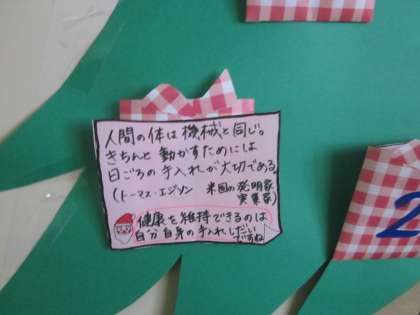 人間の体は機械と同じ。
きちんと動かすためには
日ごろの手入れが大切である。
(トーマス・エジソン 米国の発明家
実業家)
健康を維持できるのは
自分自身の手入れしだい
ですね
2